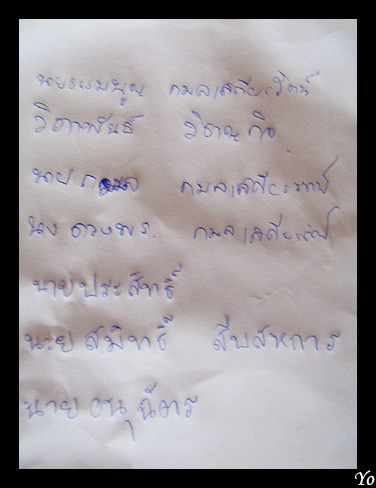 นายธรรมนูญ กมลเสถียรรัตน์
วิภาพันธ์ วิชาญกิจ
นาย กมล กมลเสถียรรัตน์
นาง ดวงพร กมลเสถียรรัตน์
นายประสิทธิ์
นาย สมิทธิ์ สืบสหการ
นาย อนุฉัตร
Yo